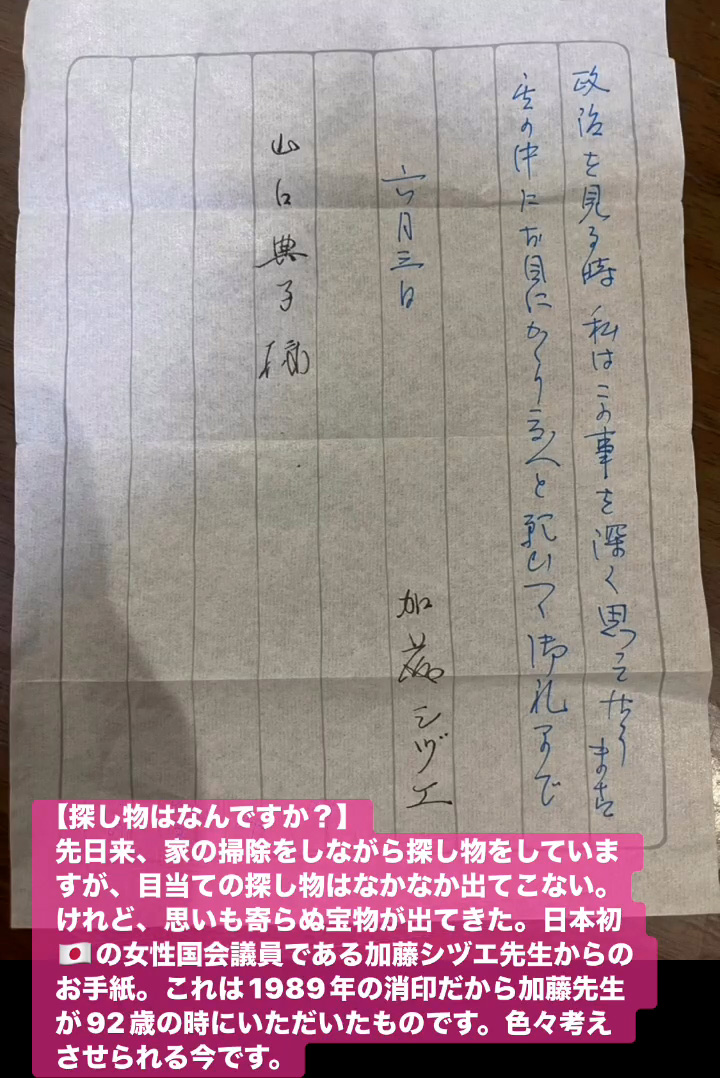 政治を見る時 私はこの事を深く思って居ります
の中にお目にかゝり 御礼まで
六月三日
加藤シヅエ
山口典子様
【探し物はなんですか？】
先日来、家の掃除をしながら探し物をしていま
すが、目当ての探し物はなかなか出てこない。
けれど、思いも寄らぬ宝物が出てきた。日本初
🇯🇵の女性国会議員である加藤シヅエ先生からの
お手紙。これは1989年の消印だから加藤先生
が92歳の時にいただいたものです。色々考え
させられる今です。